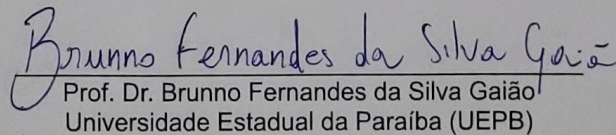 Brunno Fernandes da Silva Gaião
Prof. Dr. Brunno Fernandes da Silva Gaião
Universidade Estadual da Paraíba (UEPB)